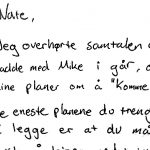 Nate,
Jeg overhørte samtalen d
adde med Mike i går, o
ine planer om å "Komme
e eneste planene du treng
legge er at du må